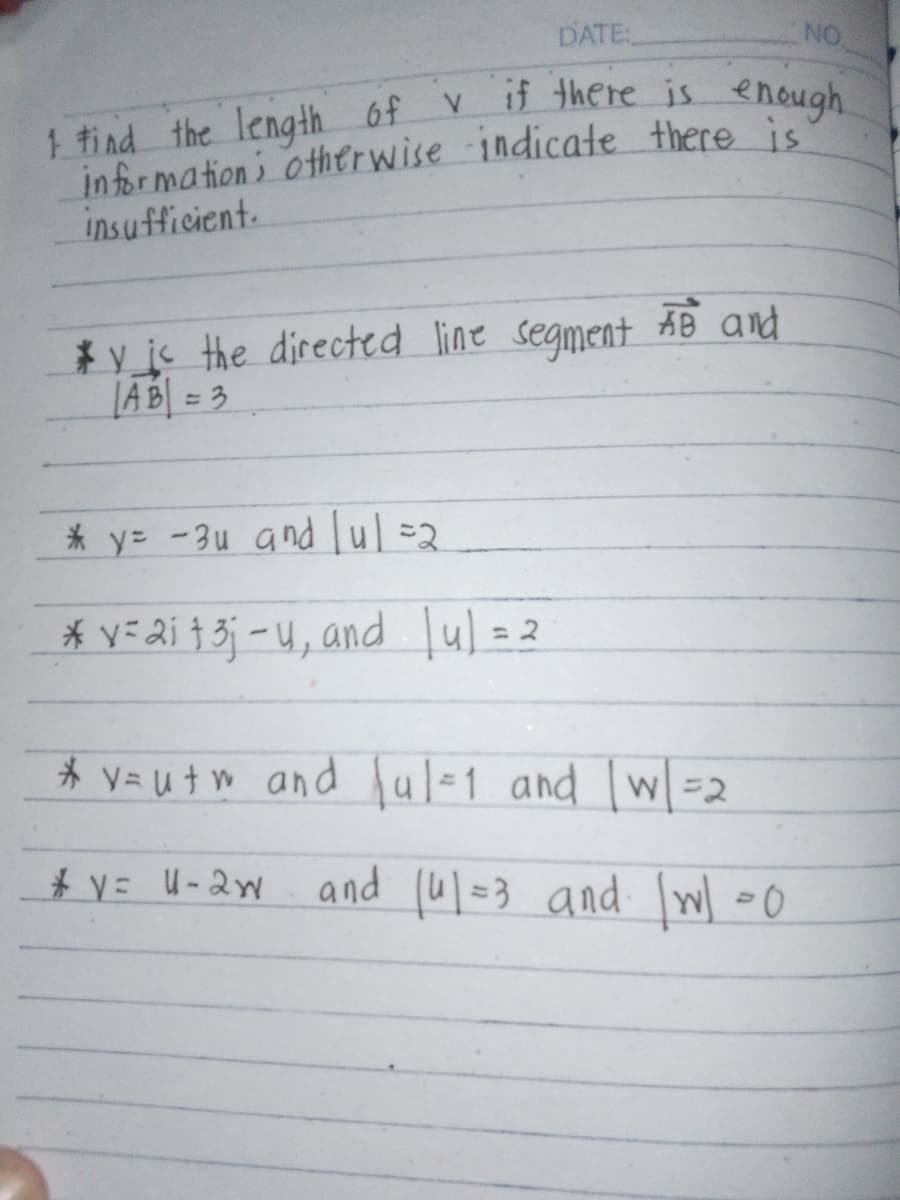 DATE: NO.
1 find the length of v if there is enough
information; otherwise indicate there is
insufficient.
* v is the directed line segment AB and
|AB| = 3
* v= -3u and |u| =2
* v=2i+3j-u, and |u| = 2
* v=u+w and |u|=1 and |w|=2
* v= u-2w and |u|=3 and |w| =0